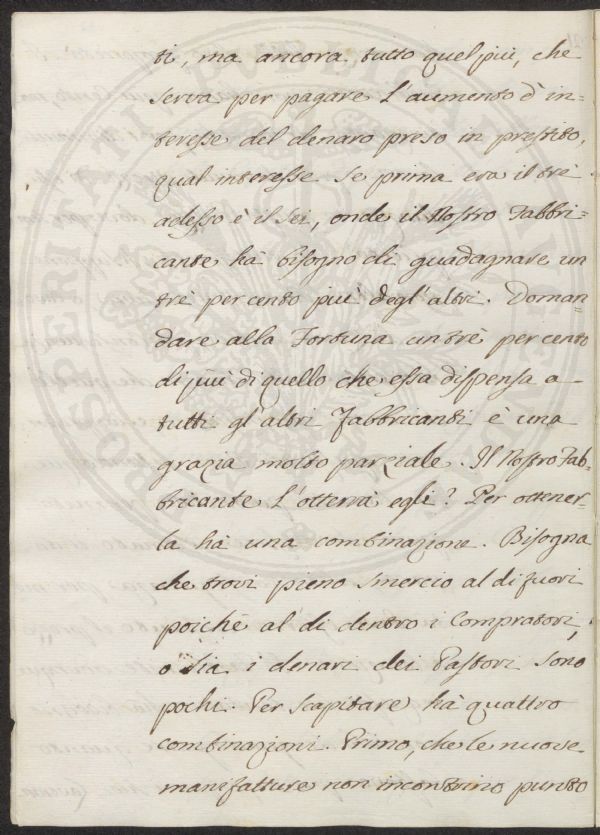 ti, ma ancora tutto quel più, che
serva per pagare l'aumento d'in=
teresse del denaro preso in prestito,
qual interesse se prima era il trè
adesso è il sei, onde il Nostro Fabbri=
cante hà bisogno di guadagnare un
trè per cento più degl'altri. Doman=
dare alla Fortuna un trè per cento
di più di quello che essa dispensa a
tutti gl'altri Fabbricanti è una
grazia molto parziale. Il Nostro Fab=
bricante l'otterrà egli? Per ottener=
la hà una combinazione. Bisogna
che trovi pieno smercio al di fuori
poichè al di dentro i Compratori,
o sia i denari dei Pastori sono
pochi. Per scapitare hà quattro
combinazioni. Primo, che le nuove
manifatture non incontrino punto
PROSPERITATI PUBLICAE AUGENDAE